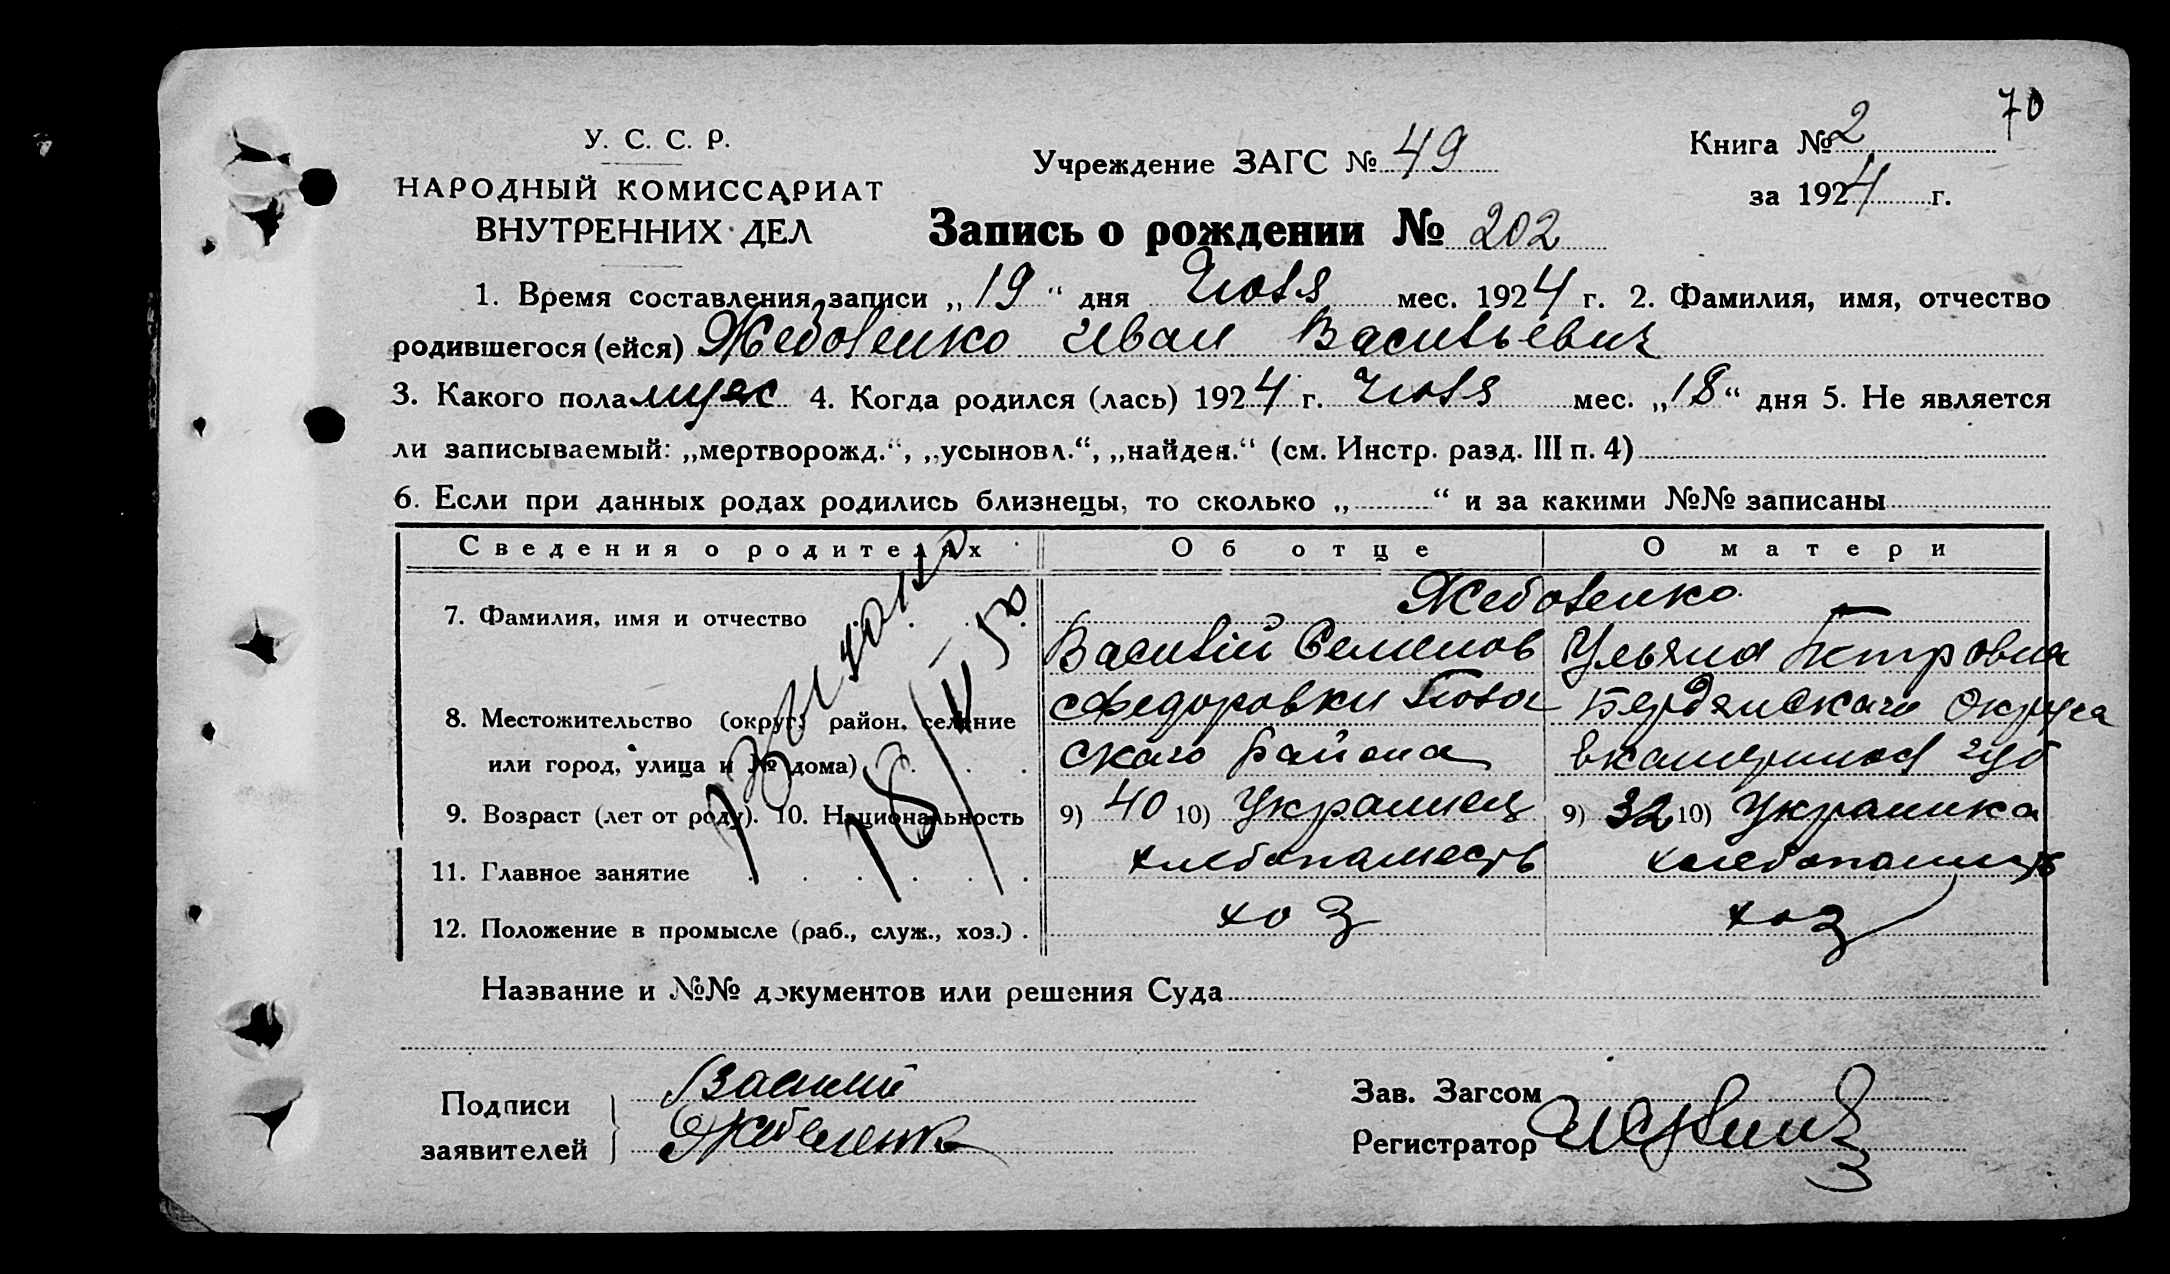 70
У. С. С. Р.
НАРОДНЫЙ КОМИССАРИАТ
ВНУТРЕННИХ ДЕЛ
Учреждение ЗАГС № 49
Книга № 2
за 1924 г.
Запись о рождении № 202
1. Время составления записи „19“ дня Июля мес. 1924 г. 2. Фамилия, имя, отчество
родившегося (ейся) Жеболенко Иван Васильевич
3. Какого пола муж 4. Когда родился (лась) 1924 г. Июля мес. „18“ дня 5. Не является
ли записываемый: „мертворожд.“, „усыновл.“, „найден.“ (см. Инстр. разд. III п. 4)
6. Если при данных родах родились близнецы, то сколько „ “ и за какими №№ записаны
Сведения о родителях Об отце О матери
7. Фамилия, имя и отчество Жеболенко
Василий Семенов Ульяна Петровна
8. Местожительство (округ, район, селение с Федоровки Бердянскаго Округа
или город, улица и № дома) скаго района губ
9. Возраст (лет от роду). 10. Национальность 9) 40 10) Украинец 9) 32 10) Украинка
11. Главное занятие хлебопашесть хлебопашесть
12. Положение в промысле (раб., служ., хоз.) хоз хоз
Название и №№ документов или решения Суда
Подписи заявителей Василий
Зав. Загсом
Регистратор